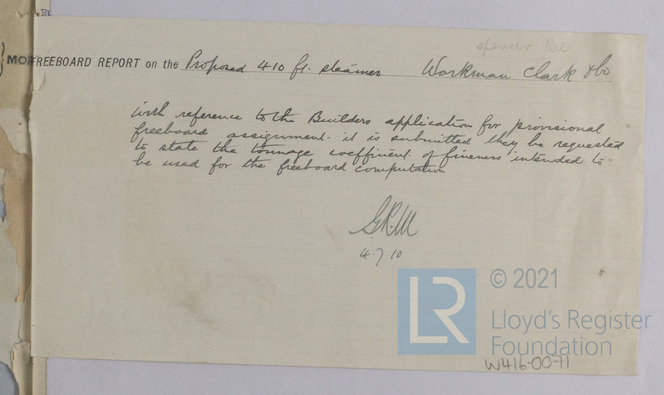 FREEBOARD REPORT on the Proposed 410 ft. steamer Workman Clark & Co
With reference to the Builders application for provisional
freeboard assignment. it is submitted they be requested
to state the tonnage coeffinent of fineness intended to
be used for the freeboard computation
4.7.10
LR
© 2021
Lloyd's Register
Foundation
W416-0071